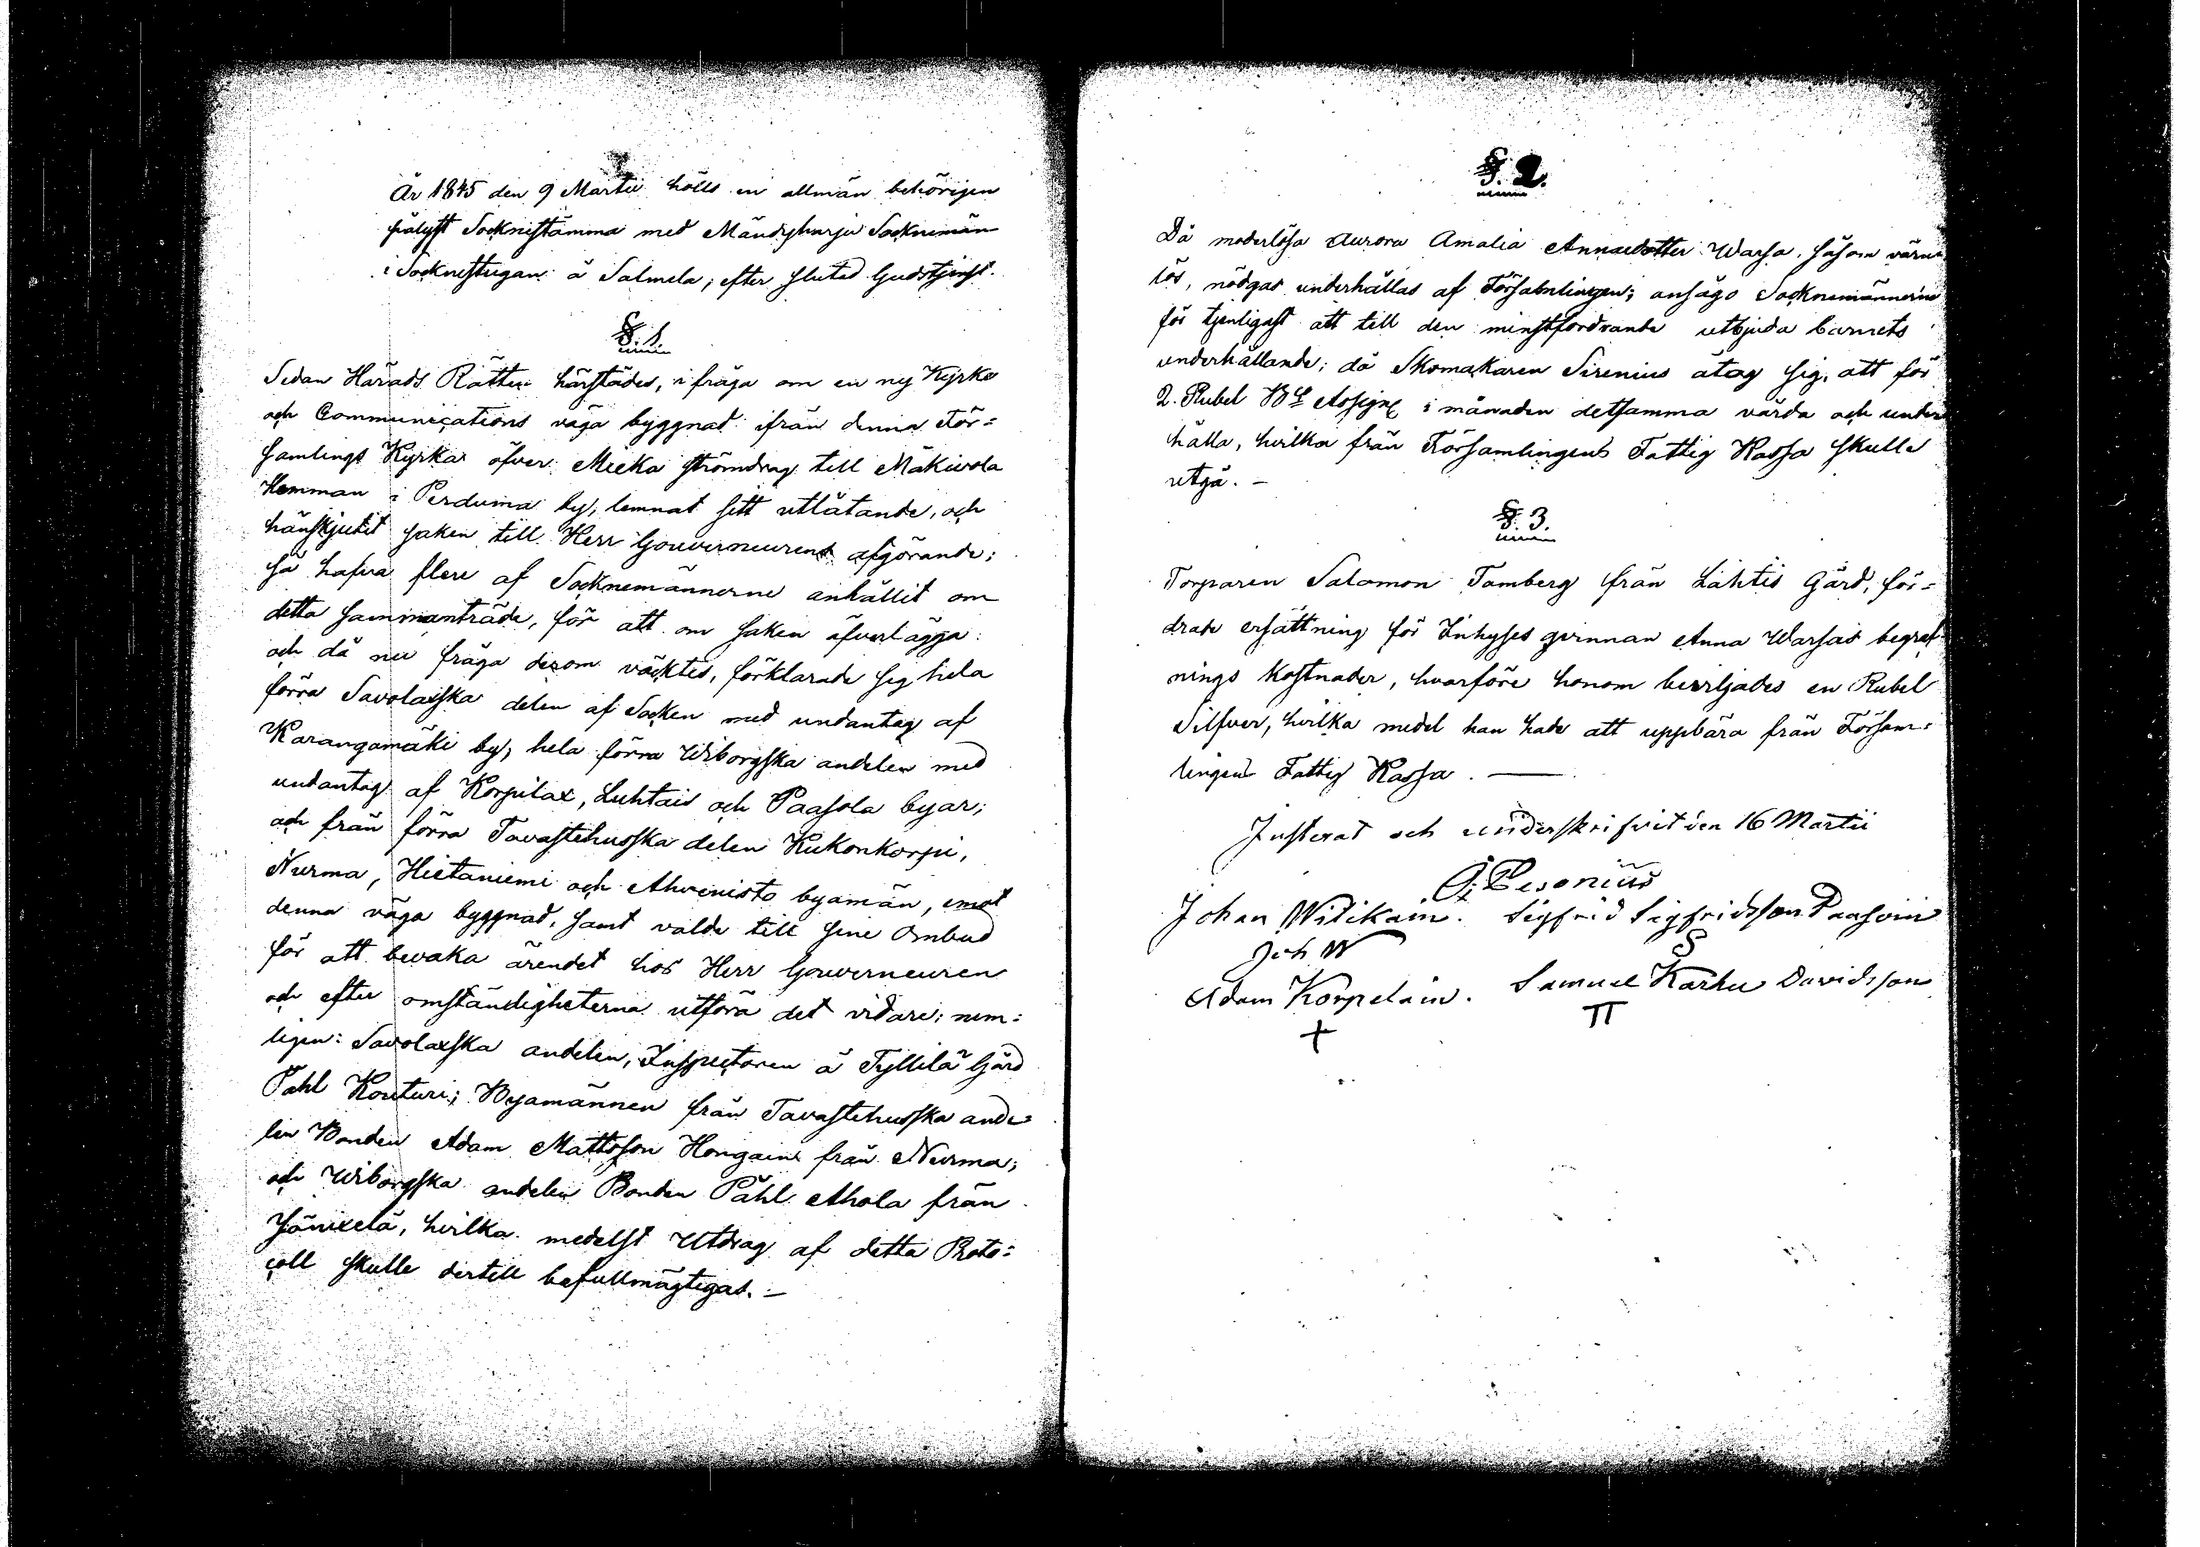 År 1845 den 9 Martii hölls en allmän behörigen
pålyst Socknestämma med Mändyharju Socknemän
i Socknestugan å Salmela, efter slutad Gudstjenst.
§. 1.
Sedan Härads Rätten härstädes, i fråga om en ny Kyrko
och Communications väga byggnad ifrån denna För=
samlings Kyrka öfver Mieka strömdrag till Mäkivola
Hemman i Perduma by, lemnat sitt utlåtande, och
hänskjutit saken till Herr Gouverneurens afgörande;
så hafva flere af Socknemännerne anhållit om
detta sammanträde, för att om saken öfverlägga:
och då nu fråga derom väcktes, förklarade sig hela
förra Savolaxska delen af Socken med undantag af
Karangamäki by, hela förra Wiborgska andelen med
undantag af Korpilax, Luhtais och Paasola byar;
och från förra Tavastehusska delen Kukonkorpi,
Nurma, Hietaniemi och Ahvenisto byamän, emot
denna väga byggnad, samt valde till sine Ombud
för att bevaka ärendet hos Herr Gouverneuren
och efter omständigheterna utföra det vidare; nem=
ligen: Savolaxska andelen, Inspectoren å Tyllilä Gård
Påhl Kouturi; Byamännen från Tavastehusska ande
len Bonden Adam Mattsson Hongain från Nurma;
och Wiborgska andelen Bonden Påhl Ahola från
Jänixelä, hvilka medelst Utdrag af detta Proto=
coll skulle dertill befullmägtigas. –
§. 2.
Då moderlösa Aurora Amalia Annaedotter Warsa, såsom värn
lös, nödgas underhållas af Församlingen; ansågo Socknemännerne
för tjenligast att till den minstfordrande utbjuda barnets
underhållande; då Skomakaren Sirenius åtog sig, att för
2. Rubel Bco Assigne i månaden detsamma vårda och under
hålla, hvilka från Församlingens Fattig Kassa skulle
utgå. –
§. 3.
Torparen Salomon Tamberg från Lahtis Gård, for=
drade ersättning för Inhyses qvinnan Anna Warsas begraf=
nings Kostnader, hvarföre honom beviljades en Rubel
Silfver, hvilka medel han hade att uppbära från Försam=
lingens Fattig Kassa. —
Justerat och underskrifvit den 16 Martii
Pesonius
Johan Witikain. Sigfrid Sigfridsson Paasoin
Joh W S
Adam Korpelain. Samuel Karhu Davidsson
+ π